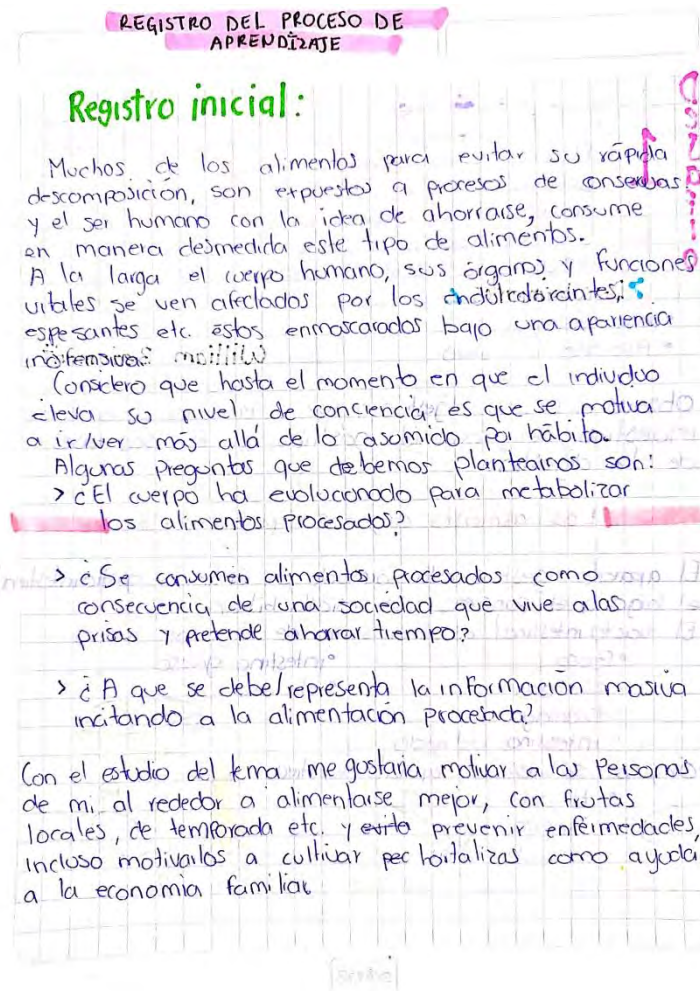 REGISTRO DEL PROCESO DE
APRENDIZAJE
Registro inicial:
Muchos de los alimentos para evitar su rápida
descomposición, son expuestos a procesos de conservas
y el ser humano con la idea de ahorrarse, consume
en manera desmedida este tipo de alimentos.
A la larga el cuerpo humano, sus órganos y funciones
vitales se ven afectados por los
espesantes etc. estos enmascarados bajo una apariencia
inofensiva.
Considero que hasta el momento en que el individuo
eleva su nivel de conciencia, es que se motiva
a ir/ver más allá de lo asumido por hábito.
Algunas preguntas que debemos plantearnos son:
> ¿El cuerpo ha evolucionado para metabolizar
los alimentos procesados?
> ¿Se consumen alimentos procesados como
consecuencia de una sociedad que vive a las
prisas y pretende ahorrar tiempo?
> ¿A que se debe/representa la información masiva
incitando a la alimentación procesada?
Con el estudio del tema me gustaria motivar a las Personas
de mi al rededor a alimentarse mejor, con frutas
locales, de temporada etc. y evita prevenir enfermedades,
incluso motivarlos a cultivar como ayuda
a la economia familiar